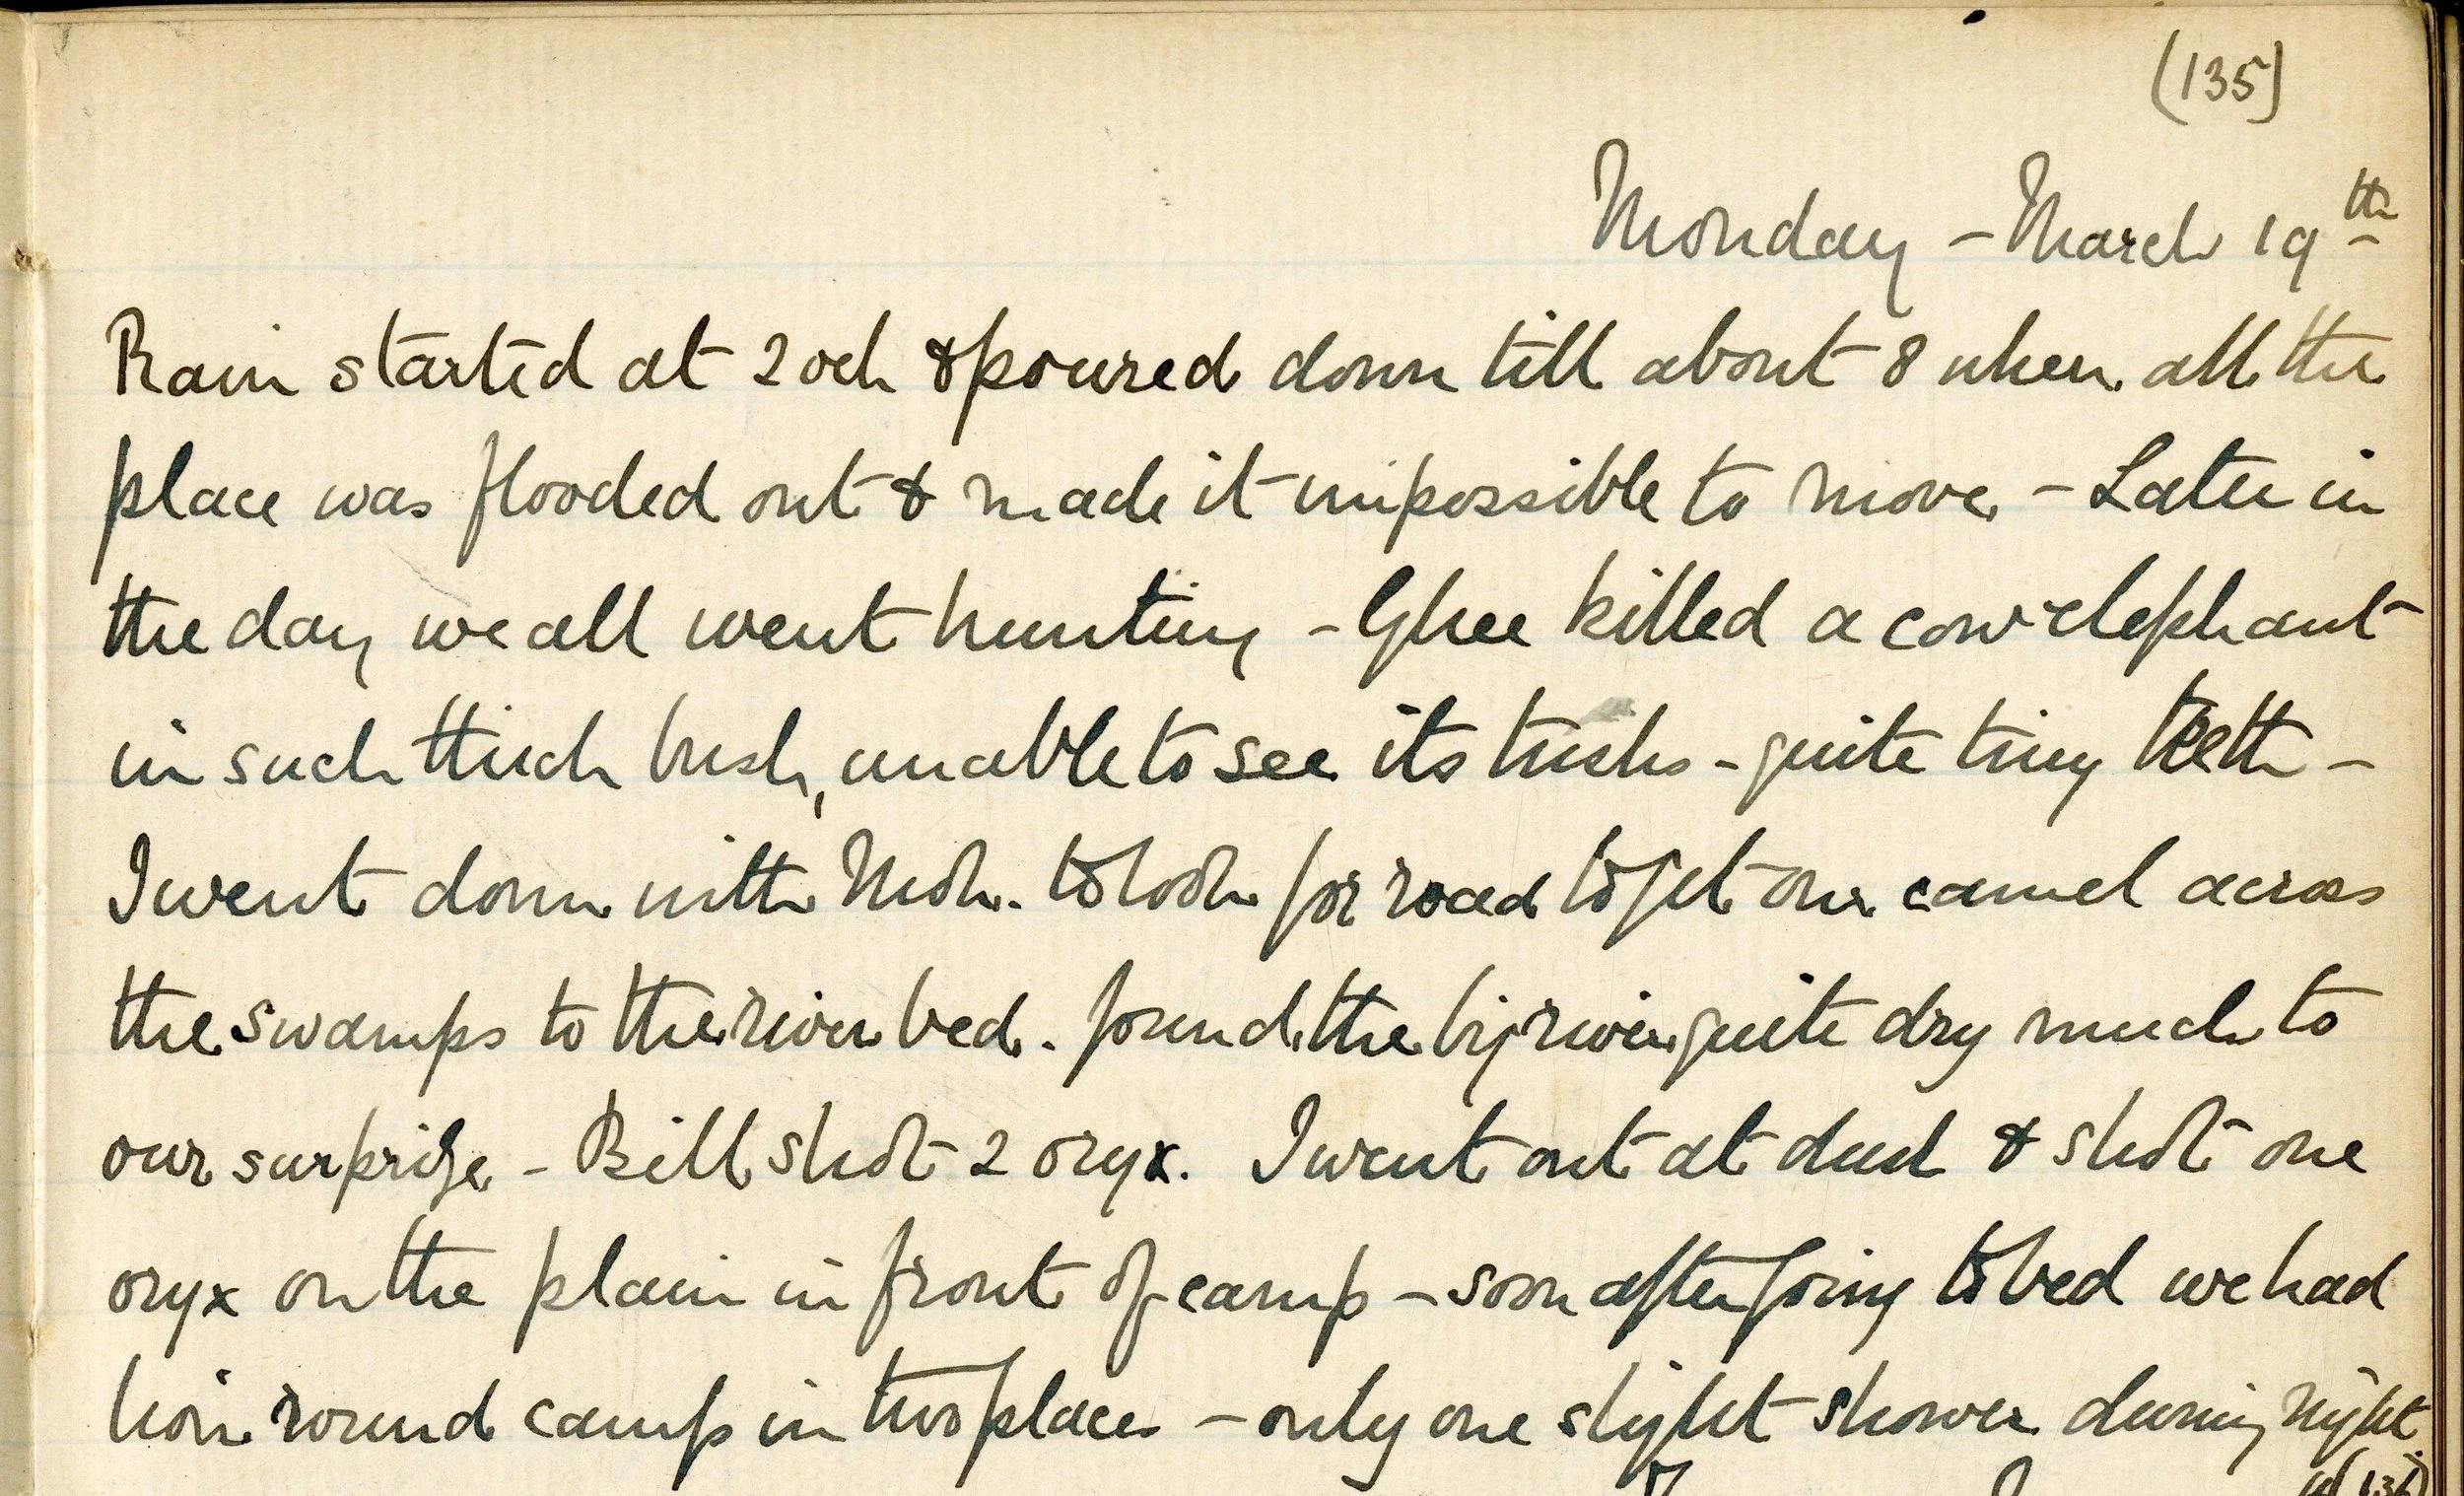 (135)
Monday - March 19th
Rain started at 2 ock & poured down till about 8 when all the
place was flooded out & made it impossible to move - Later in
the day we all went hunting - Ghee killed a cow elephant
in such thick bush, unable to see its tusks - quite tiny teeth -
I went down with Moh. to look for road to get our camel across
the swamps to the river bed. found the big river quite dry much to
our surprise - Bill shot 2 oryx. I went out at dusk & shot one
oryx on the plain in front of camp - soon after going to bed we had
lion round camp in two places - only one slight shower during night